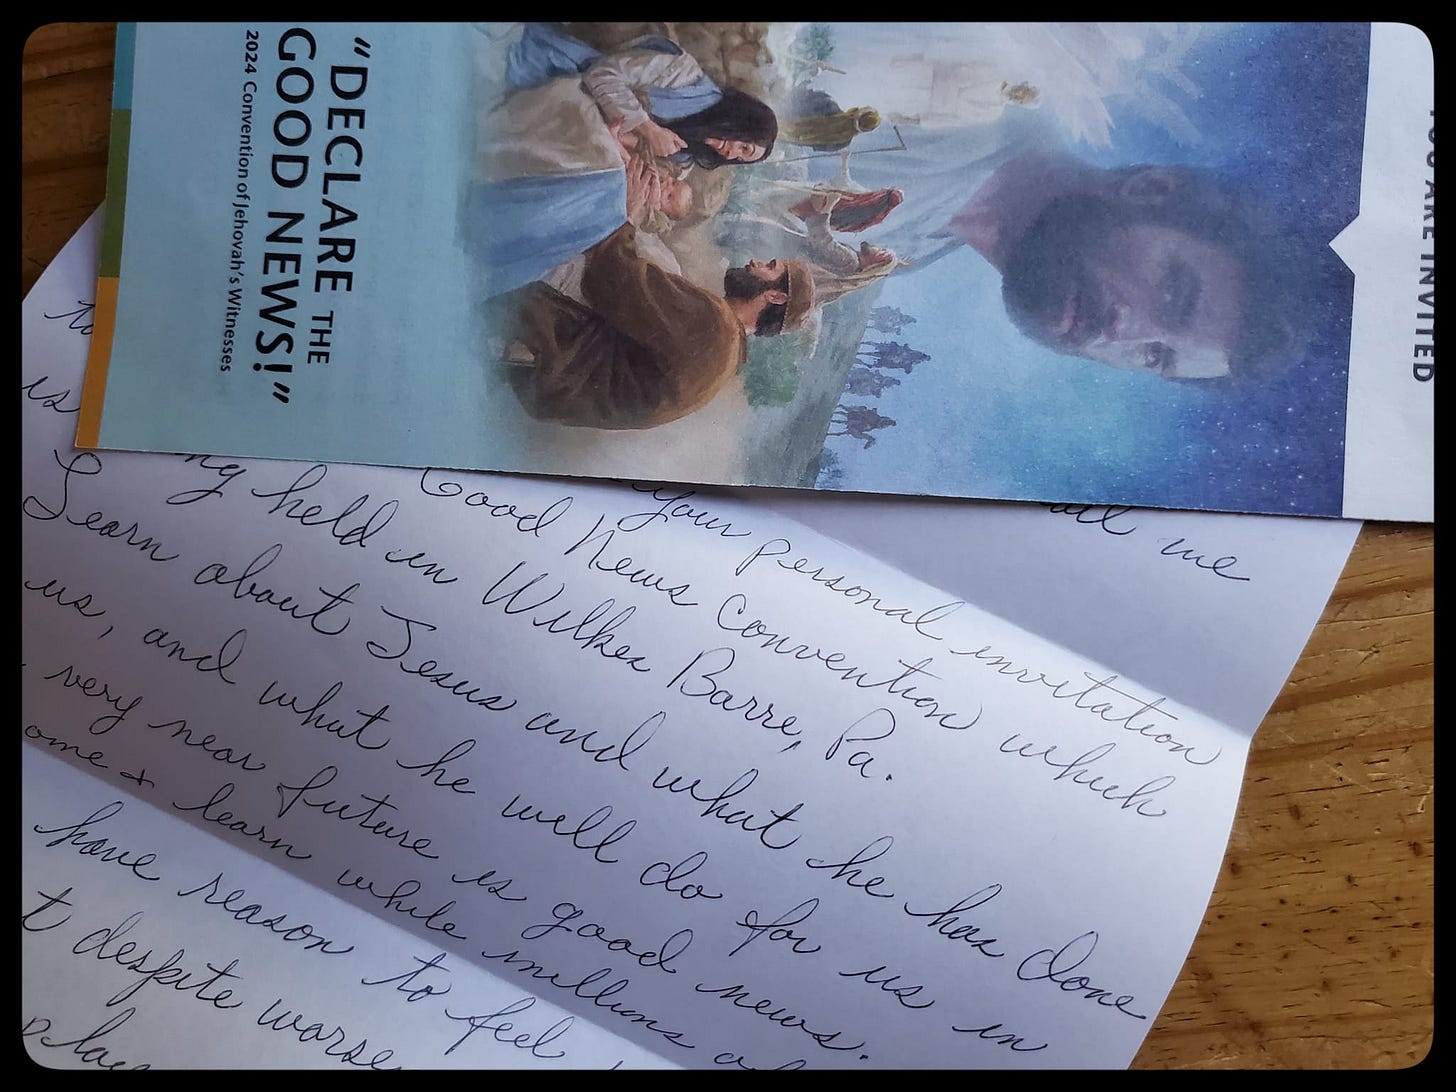 YOU ARE INVITED
"DECLARE THE
GOOD NEWS!"
2024 Convention of Jehovah's Witnesses
me
is your personal invitation
Good News Convention which
held in Wilkes Barre, Pa.
Learn about Jesus and what he has done
us, and what he will do for us in
very near future is good news.
ome & learn while millions
have reason to feel
t despite worse